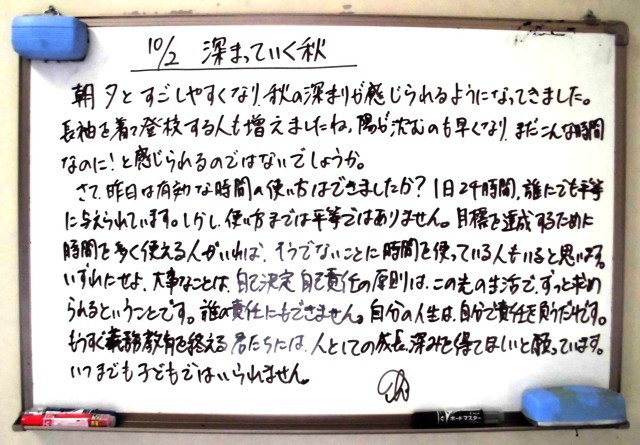 10/2 深まっていく秋
朝夕とすごしやすくなり、秋の深まりが感じられるようになってきました。
長袖を着て登校する人も増えましたね。陽が沈むのも早くなり、まだこんな時間
なのに！と感じられるのではないでしょうか。
さて、昨日は有効な時間の使い方はできましたか？1日24時間、誰にでも平等
に与えられています。しかし、使い方までは平等ではありません。目標を達成するために
時間を多く使える人がいれば、そうでないことに時間を使っている人もいると思います。
いずれにせよ、大事なことは、自己決定 自己責任の原則は、この先の生活で、ずっと求め
られるということです。誰の責任にもできません。自分の人生は、自分で責任を負うだけです。
もうすぐ義務教育を終える君たちには、人としての成長、深みを得てほしいと願っています。
いつまでも子どもではいられません。
ボードマスター